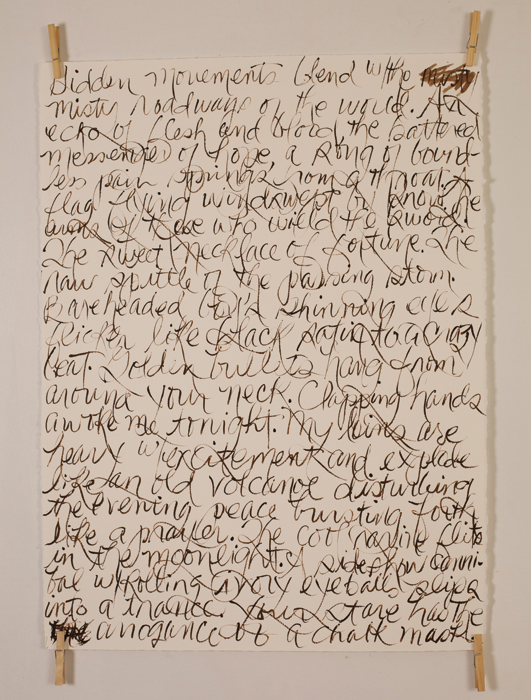 Hidden Movements blend w/the
misty roadways of the world. An
echo of flesh and blood, the battered
messenger of hope, a song of bound-
less pain springs from a throat. A
flag flying windswept by snow, the
arms of those who wield the sword.
The sweet necklace of torture. The
raw spittle of the passing storm.
Bareheaded spinning eyes
flicker like black satin to a crazy
beat. Golden bullets hang from
around your neck. Clapping hands
awake me tonight. My loins are
heavy w/excitement and explode
like an old volcano disturbing
the evening peace bursting forth
like a prayer. The
in the moonlight. A sideshow canni-
bal w/rolling ivory eyeballs slips
into a trance. Your stare has the
arrogance of a chalk mask.